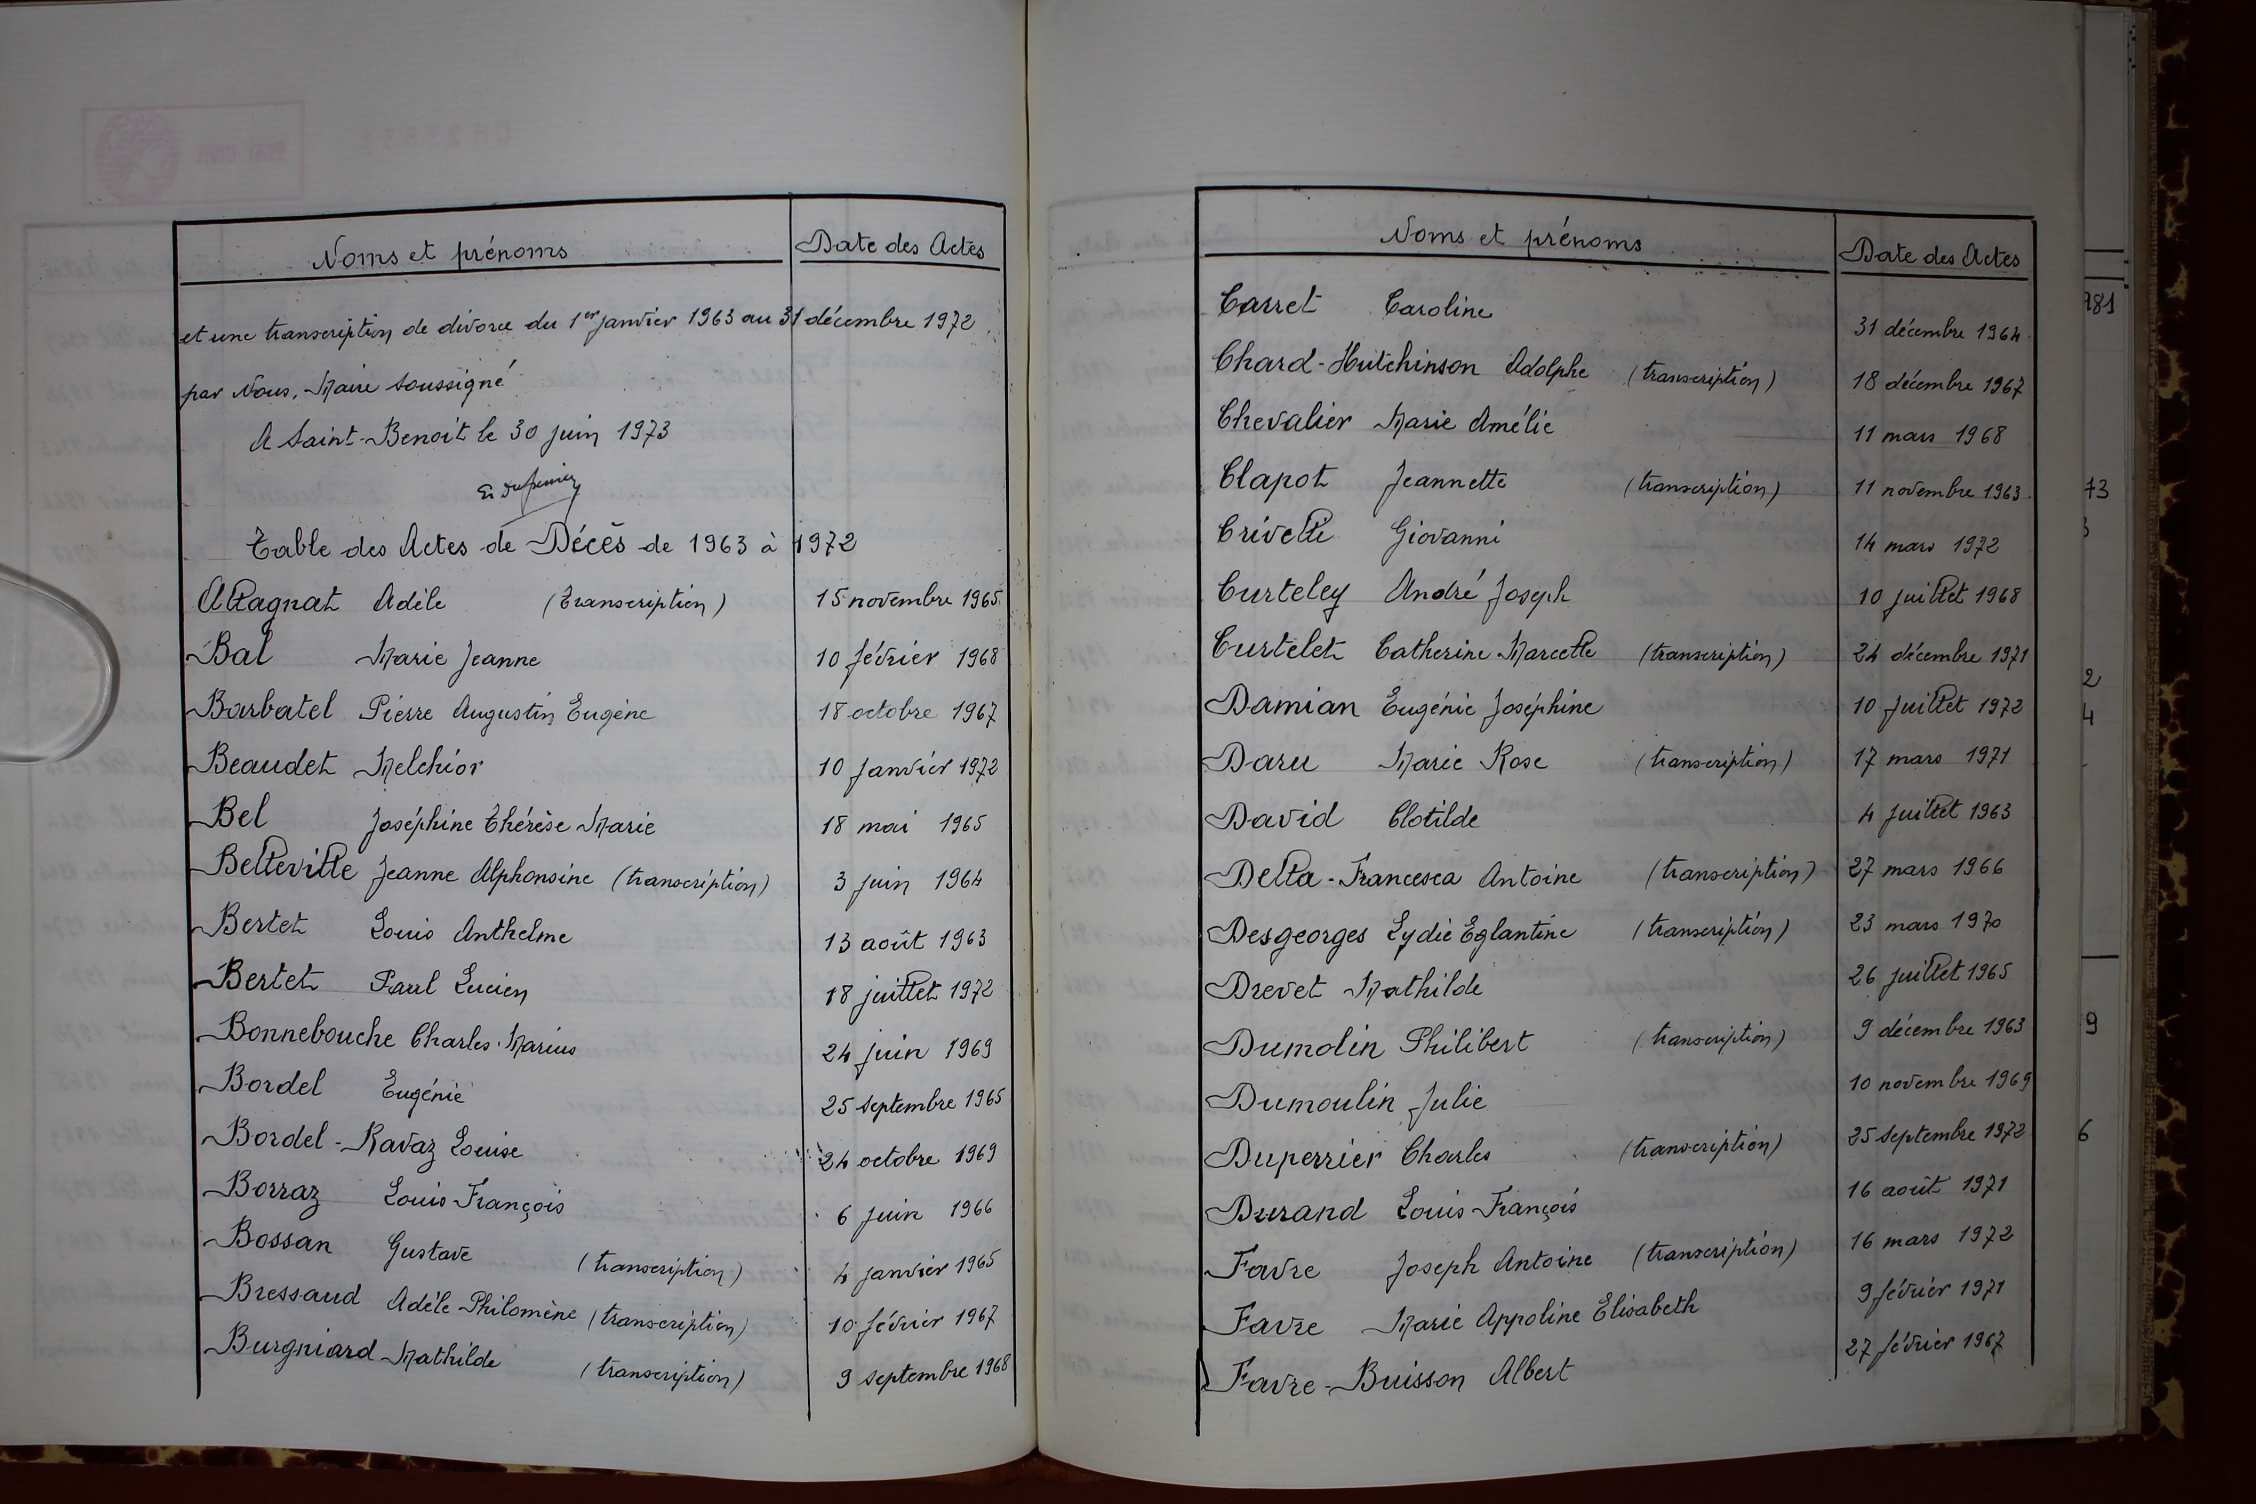 Noms et prénoms Date des Actes
et une transcription de divorce du 1er janvier 1963 au 31 décembre 1972
par Nous, Maire soussigné
A Saint-Benoit le 30 juin 1973
Table des Actes de Décès de 1963 à 1972
Allagnat Adèle (Transcription) 15 novembre 1965
Bal Marie Jeanne 10 février 1968
Barbatel Pierre Augustin Eugène 18 octobre 1967
Beaudet Melchior 10 janvier 1972
Bel Joséphine Thérèse Marie 18 mai 1965
Belleville Jeanne Alphonsine (transcription) 3 juin 1964
Bertet Louis Anthelme 13 août 1963
Bertet Paul Lucien 18 juillet 1972
Bonnebouche Charles Marius 24 juin 1969
Bordel Eugénie 25 septembre 1965
Bordel-Ravaz Louise 24 octobre 1969
Borraz Louis François 6 juin 1966
Bossan Gustave (transcription) 4 janvier 1965
Bressaud Adèle Philomène (transcription) 10 février 1967
Burgniard Mathilde (transcription) 9 septembre 1968
Noms et prénoms Date des Actes
Carret Caroline 31 décembre 1964
Chard-Hutchinson Adolphe (transcription) 18 décembre 1967
Chevalier Marie Amélie 11 mars 1968
Clapot Jeannette (transcription) 11 novembre 1963
Crivelli Giovanni 14 mars 1972
Curteley André Joseph 10 juillet 1968
Curtelet Catherine Marcelle (transcription) 24 décembre 1971
Damian Eugénie Joséphine 10 juillet 1972
Daru Marie Rose (transcription) 17 mars 1971
David Clotilde 4 juillet 1963
Della-Francesca Antoine (transcription) 27 mars 1966
Desgeorges Lydie Eglantine (transcription) 23 mars 1970
Drevet Mathilde 26 juillet 1965
Dumolin Philibert (transcription) 9 décembre 1963
Dumoulin Julie 10 novembre 1969
Duperrier Charles (transcription) 25 septembre 1972
Durand Louis François 16 août 1971
Favre Joseph Antoine (transcription) 16 mars 1972
Favre Marie Appoline Elisabeth 9 février 1971
Favre-Buisson Albert 27 février 1967
981
73
3
2
4
9
6